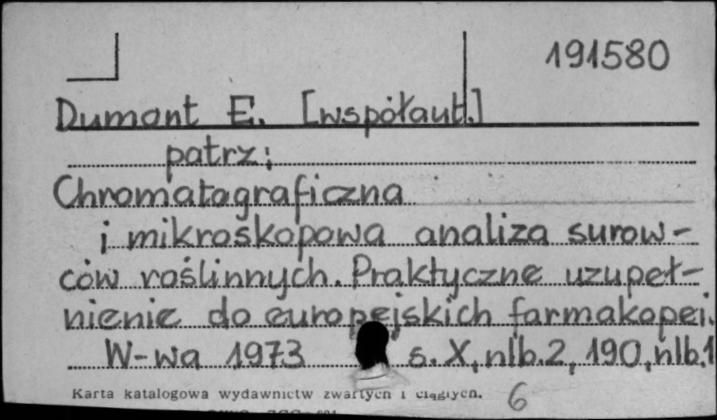 191580
Dumont E. [współaut.]
patrz:
Chromatograficzna
i mikroskopowa analiza surow-
ców roślinnych. Praktyczne uzupeł-
nienie do europejskich farmakopei.
W-wa 1973 s. X, nlb. 2, 190, nlb. 1
Karta katalogowa wydawnictw zwartych i ciągłych. 6